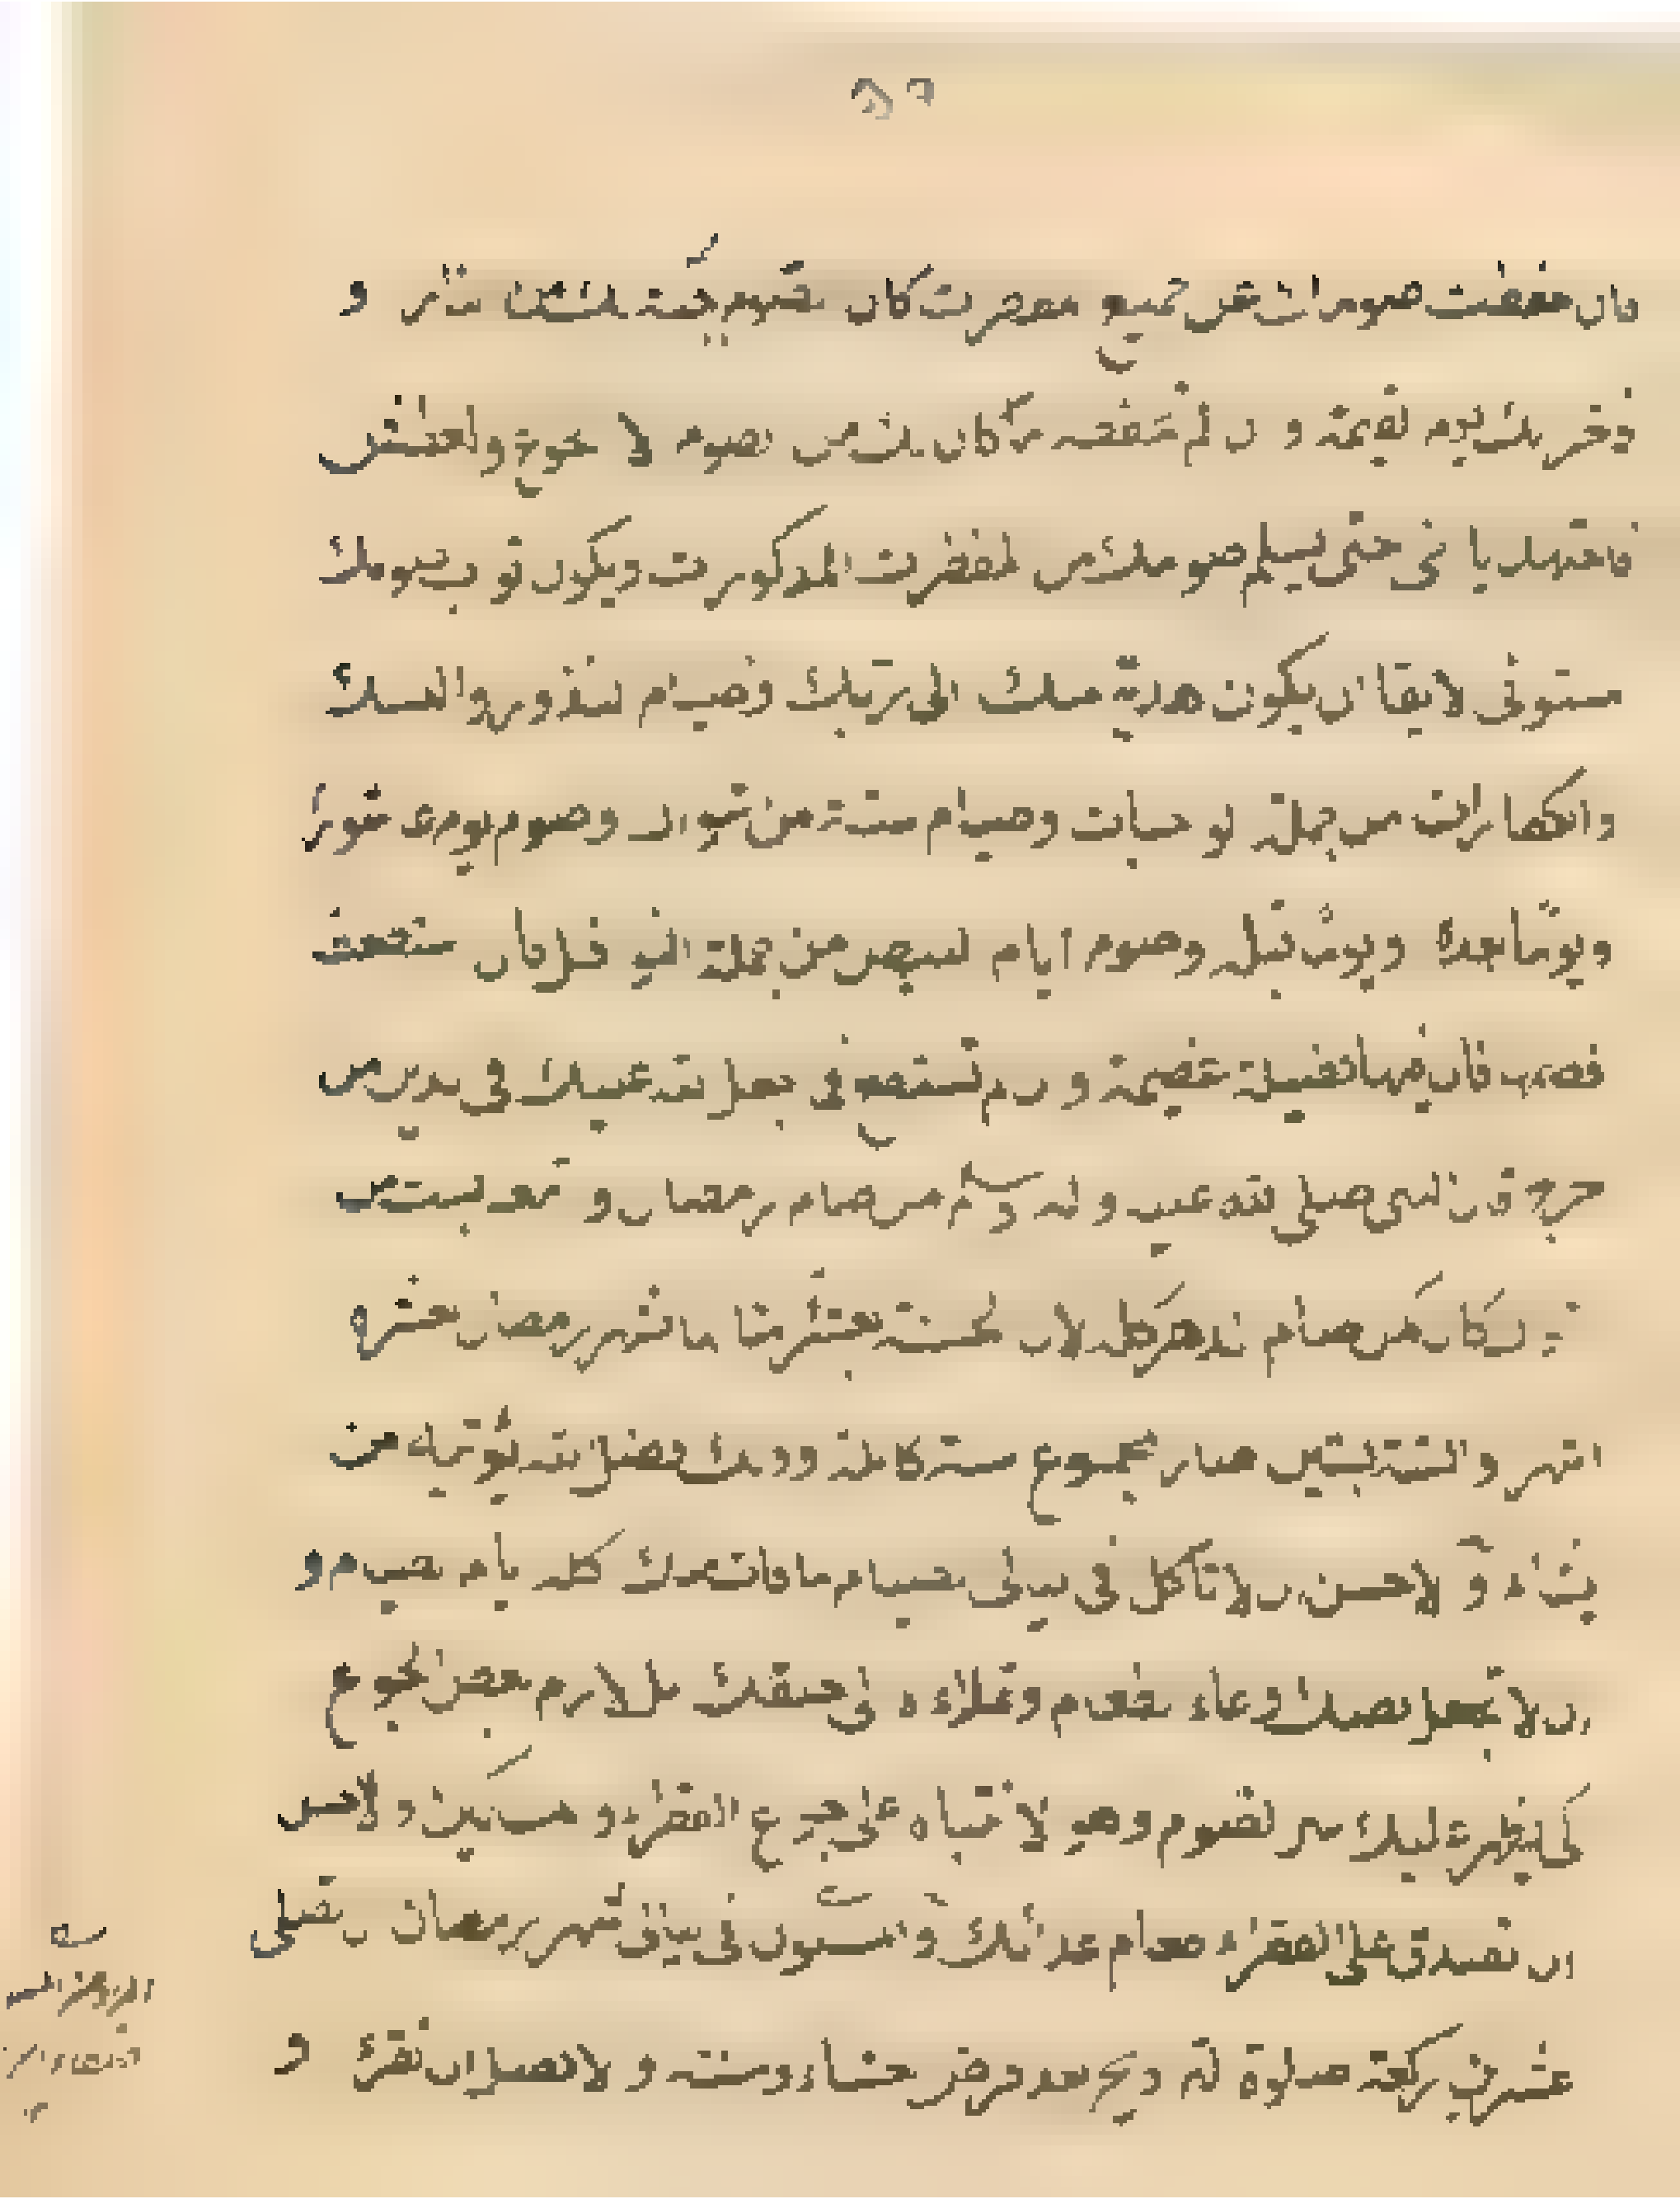 فان حفظت صومك عن جميع المفطرات كان الصوم جنة لك من النار و
ذخر لك يوم القيمة و ان لم تحفظه ما كان لك من الصوم الا الجوع والعطش
فاجتهد يا اخى حتى يسلم صومك من المفطرات المذكورات ويكون ثواب صومك
لايقا ان يكون هدية منك الى ربك وصيام النذور والنسك
والكفارات من جملة الواجبات وصيام ستة من شوال وصوم يوم عاشوراء
ويوما بعده ويوما قبله وصوم ايام البيض من جملة النوافل فان استطعت
فصمها فان فيها فضيلة عظيمة و ان لم تستطع فما جعل الله عليك فى الدين من
حرج قال النبى صلى الله عليه و اله وسلم من صام رمضان و اتبعه بست من
شوال كان كمن صام الدهر كله لان الحسنة بعشر امثالها شهر رمضان بعشرة
اشهر والستة بستين صار المجموع سنة كاملة وذلك فضل الله يؤتيه من
يشاء و الاحسن ان لا تأكل فى ليالى الصيام ما فاتك كله بايام الصيام و
ان لا تجعل بطنك وعاء الطعام وتملاءه الى حلقك بل لازم بعض الجوع
كى يظهر لك سر الصوم وهو الانتباه على جوع الفقراء و المساكين و الاحسن
ان تصدق على الفقراء طعام غدائك و المسنون فى ليالى شهر رمضان ان تصلى
عشرين ركعة صلوة التراويح بعد فرض العشاء وسنته و الافضل ان تقرأ و